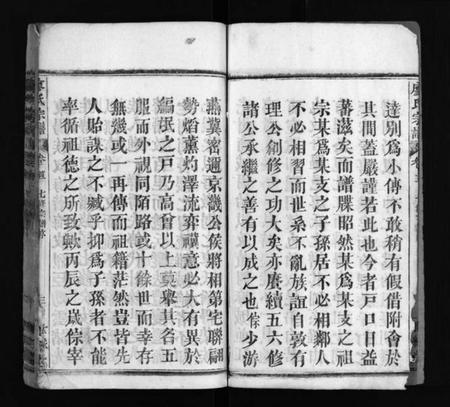 達別爲小傳不敢稍有假借附會於
其間蓋嚴謹若此也今者戶口日益
蕃滋矣而譜牒昭然某爲某支之祖
宗某爲某支之子孫居不必相鄰人
不必相習而世系不亂族誼自敦有
理公創修之功大矣亦賡續五六修
諸公承繼之善有以成之也 少游
燕冀密邇京畿公侯將相第宅聯翩
勢焰薰灼澤流弈禩意必大有異於
編氓之戶乃高曾以上莫舉其名五
服而外視同陌路或十餘世而幸存
無幾或一再傳而祖籍茫然豈皆先
人貽謀之不臧乎抑爲子孫者不能
率循祖德之所致歟丙辰之歲 宰
氏宗譜